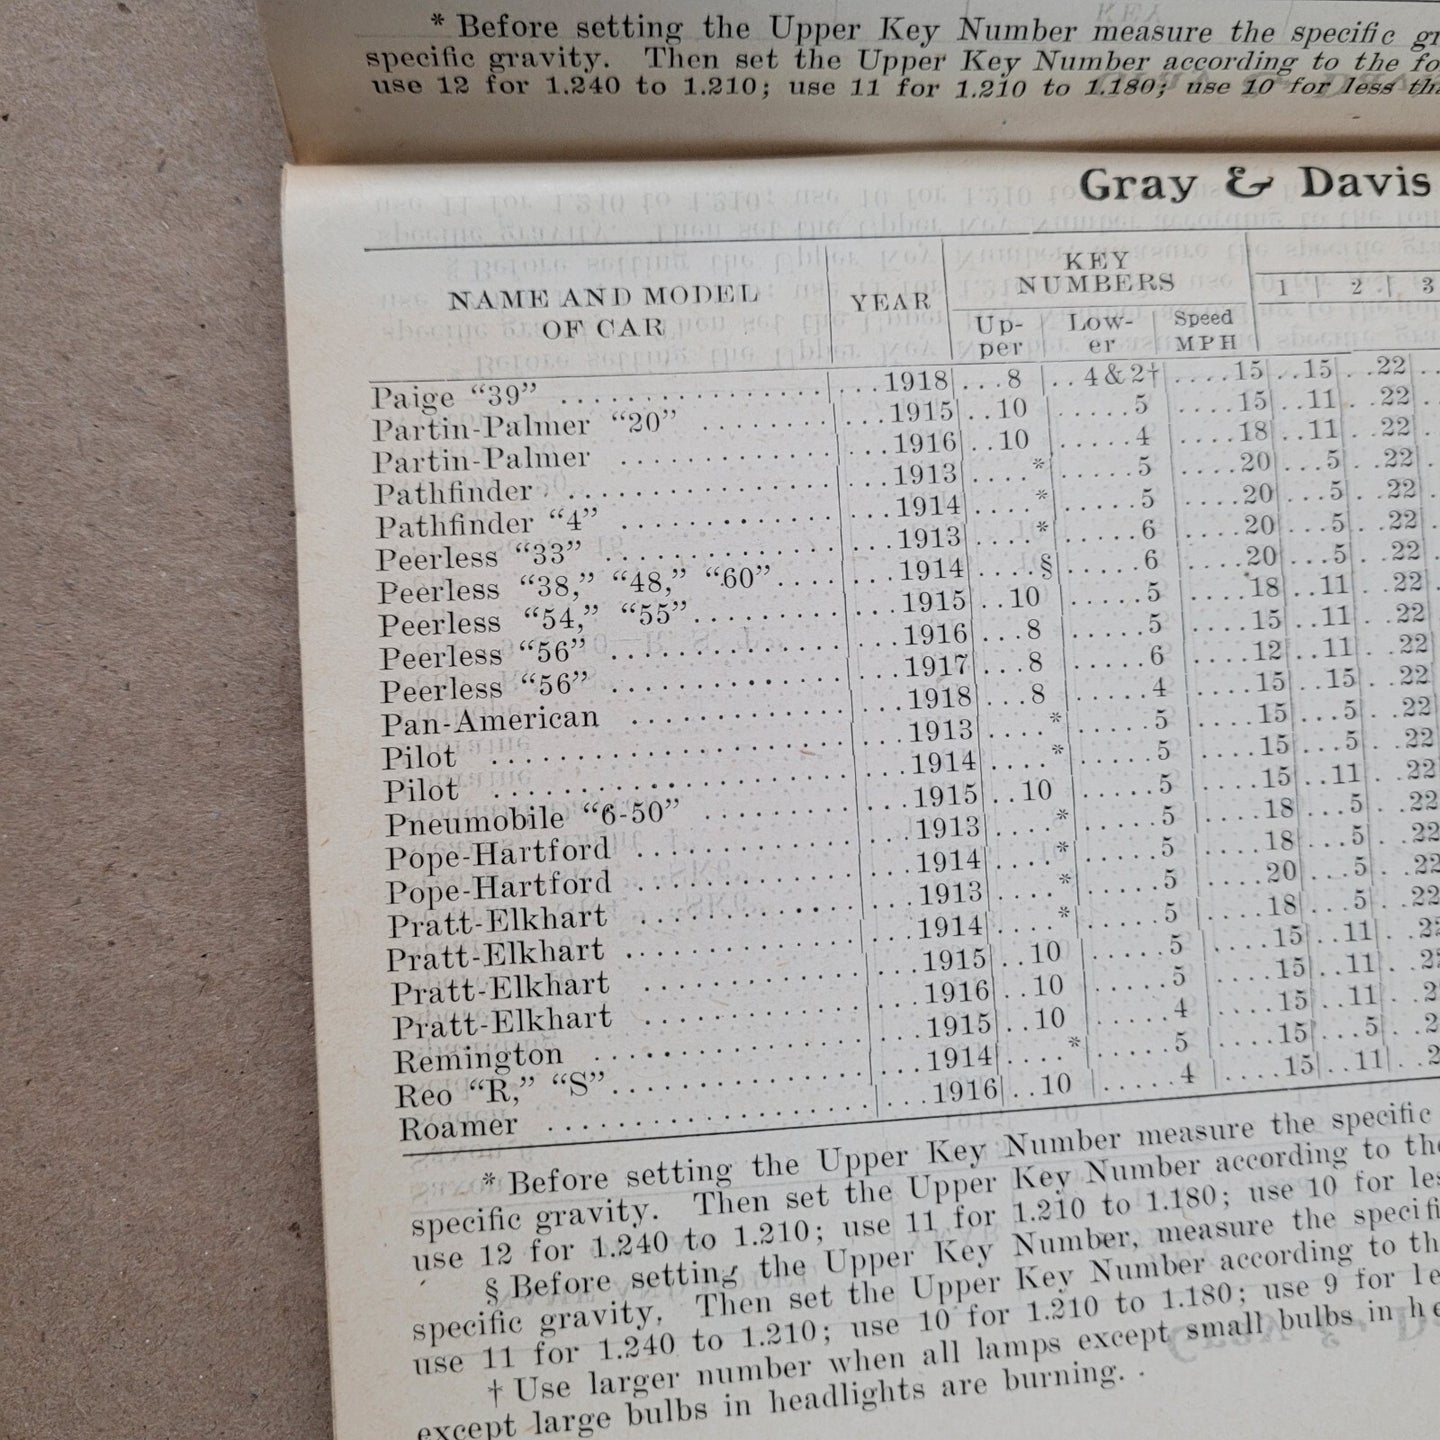 * Before setting the Upper Key Number measure the specific
specific gravity. Then set the Upper Key Number according to the
use 12 for 1.240 to 1.210; use 11 for 1.210 to 1.180; use 10 for less
Gray & Davis
NAME AND MODEL OF CAR YEAR KEY NUMBERS 1 2 3
Up-per Low-er Speed MPH
Paige “39” ................ ...1918 ...8 ..4&2† ....15 ..15 ..22
Partin-Palmer “20” ........ ...1915 ..10 .....5 ....15 ..11 ..22
Partin-Palmer ............. ...1916 ..10 .....4 ....18 ..11 ..22
Pathfinder ................ ...1913 ....* .....5 ....20 ...5 ..22
Pathfinder “4” ............ ...1914 ....* .....5 ....20 ...5 ..22
Peerless “33” ............. ...1913 ....* .....6 ....20 ...5 ..22
Peerless “38,” “48,” “60”.... ...1914 ....§ .....6 ....20 ...5 ..22
Peerless “54,” “55”......... ...1915 ..10 .....5 ....18 ..11 ..22
Peerless “56” ............. ...1916 ...8 .....5 ....15 ..11 ..22
Peerless “56” ............. ...1917 ...8 .....6 ....12 ..11 ..22
Pan-American ............ ...1918 ...8 .....4 ....15 ..15 ..22
Pilot .................... ...1913 ....* .....5 ....15 ...5 ..22
Pilot .................... ...1914 ....* .....5 ....15 ...5 ..22
Pneumobile “6-50” ........ ...1915 ..10 .....5 ....15 ..11 ..22
Pope-Hartford ............ ...1913 ....* .....5 ....18 ...5 ..22
Pope-Hartford ............ ...1914 ....* .....5 ....18 ...5 ..22
Pratt-Elkhart ............ ...1913 ....* .....5 ....20 ...5 ..22
Pratt-Elkhart ............ ...1914 ....* .....5 ....18 ...5 ..22
Pratt-Elkhart ............ ...1915 ..10 .....5 ....15 ..11 ..22
Pratt-Elkhart ............ ...1916 ..10 .....5 ....15 ..11 ..2
Remington .............. ...1915 ..10 .....4 ....15 ..11 ..2
Reo “R,” “S”............. ...1914 ....* .....5 ....15 ...5 ..2
Roamer ................. ...1916 ..10 .....4 ....15 ..11 ..2
* Before setting the Upper Key Number measure the specific
specific gravity. Then set the Upper Key Number according to the
use 12 for 1.240 to 1.210; use 11 for 1.210 to 1.180; use 10 for
§ Before setting the Upper Key Number, measure the
specific gravity. Then set the Upper Key Number according to
use 11 for 1.240 to 1.210; use 10 for 1.210 to 1.180; use 9 for
† Use larger number when all lamps except small bulbs in
except large bulbs in headlights are burning.